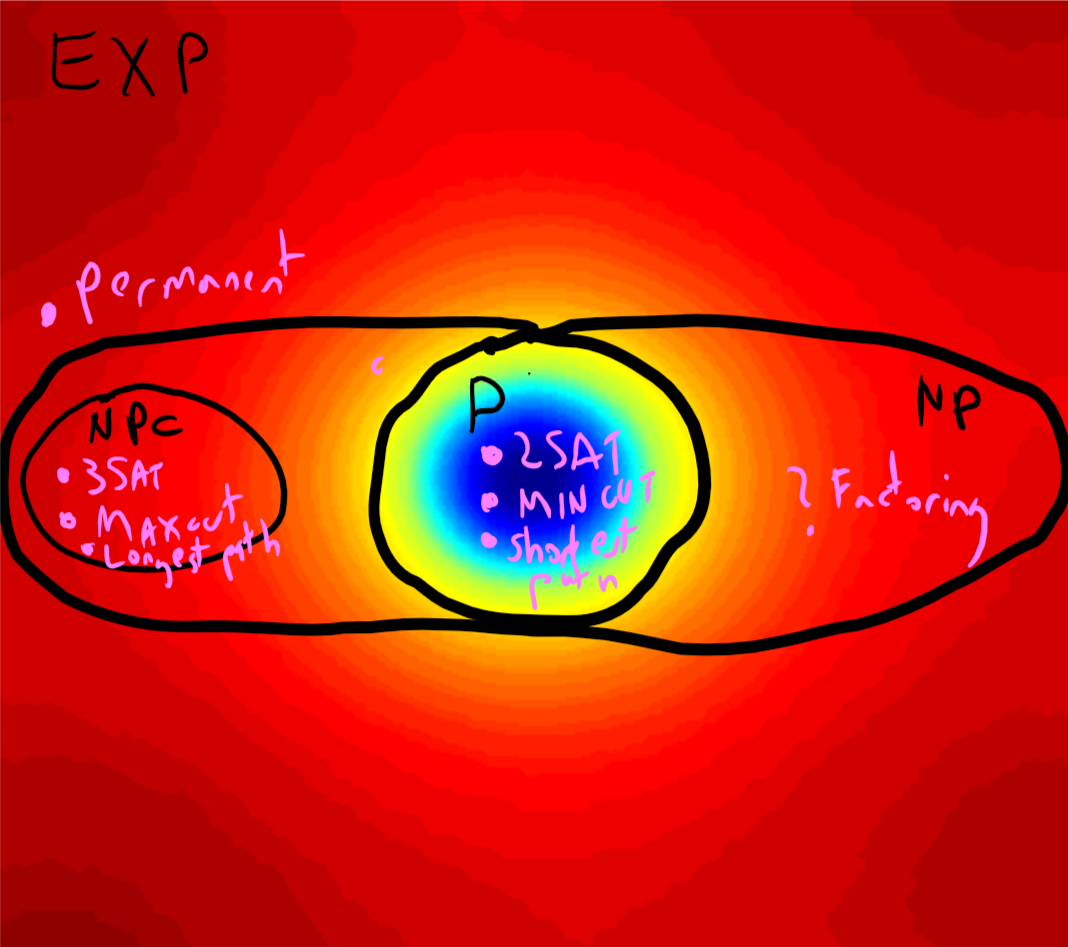 EXP
• Permanent
c
P
NP
NPC
• 3SAT
• MAXcut
• Longest path
• 2SAT
• MIN CUT
• shortest
path
? Factoring